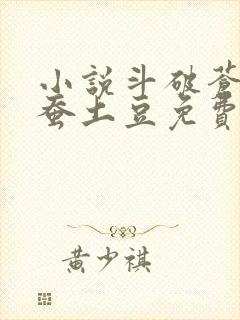 小說斗破蒼
蚕土豆免費
黃少祺